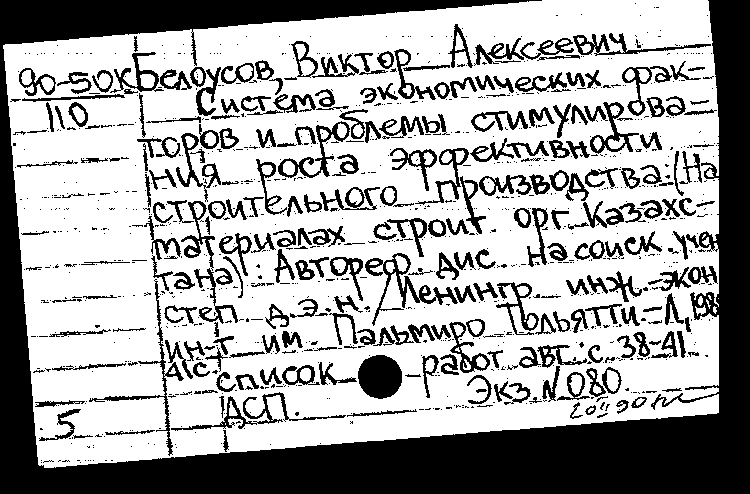 90-50К Белоусов, Виктор Алексеевич.
110 Система экономических фак-
торов и проблемы стимулирова-
ния роста эффективности
строительного производства: (На
материалах строит. орг. Казахс-
тана): Автореф. дис. на соиск. учен
степ. д.э.н. / Ленингр. инж.-экон
ин-т им. Пальмиро Тольятти.-Л., 198
41с список работ авт.: с. 38-41.
5 ДСП. Экз. N 080.